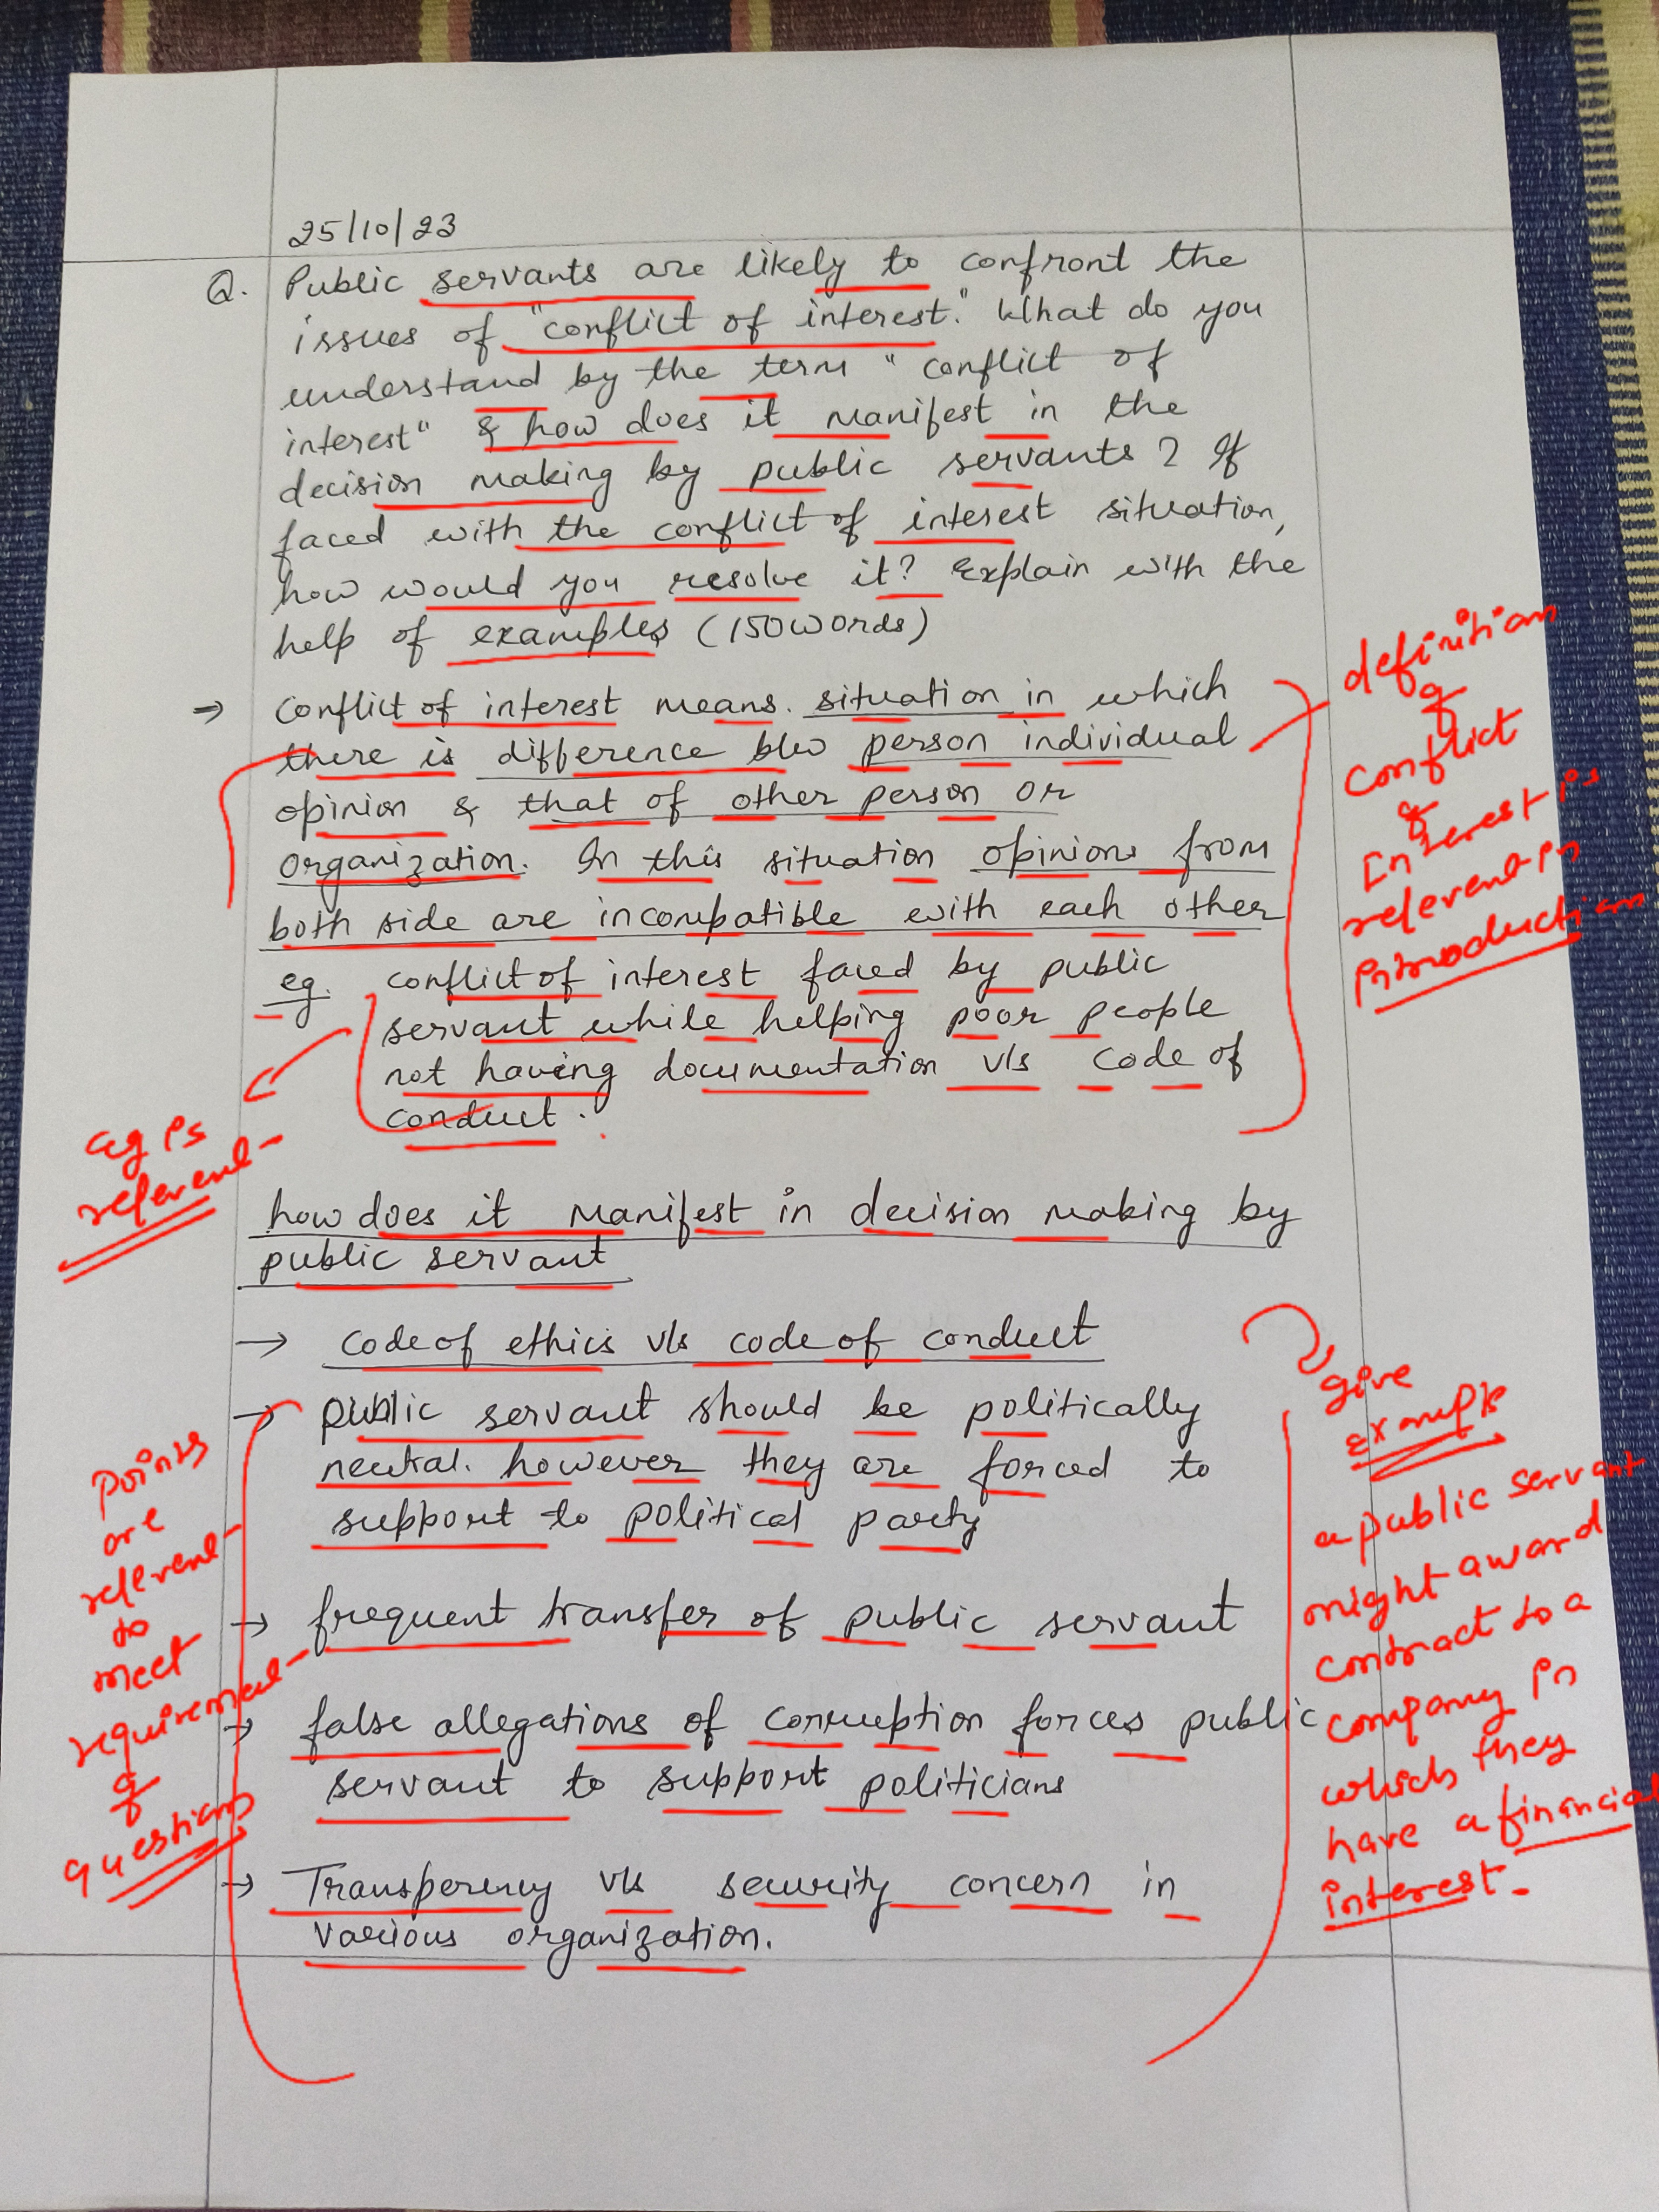 25/10/23
Q. Public servants are likely to confront the
issues of "conflict of interest." What do you
understand by the term "conflict of
interest" & how does it manifest in the
decision making by public servants? If
faced with the conflict of interest situation,
how would you resolve it? Explain with the
help of examples (150words)
→ Conflict of interest means. situation in which
there is difference b/w person individual
opinion & that of other person or
organization. In this situation opinions from
both side are incompatible with each other
eg. conflict of interest faced by public
servant while helping poor people
not having documentation v/s code of
conduct.
definition
of
conflict
of
Interest is
relevent in
introduction
Eg is
relevent
how does it manifest in decision making by
public servant
→ code of ethics v/s code of conduct
→ public servant should be politically
neutral. however they are forced to
support to political party
→ frequent transfer of public servant
→ false allegations of corruption forces public
servant to support politicians
→ Transperency v/s security concern in
various organization.
Points
are
relevent
to
meet
requirement
of
questions
give
example
a public servant
might award
contract to a
company in
which they
have a financial
interest.